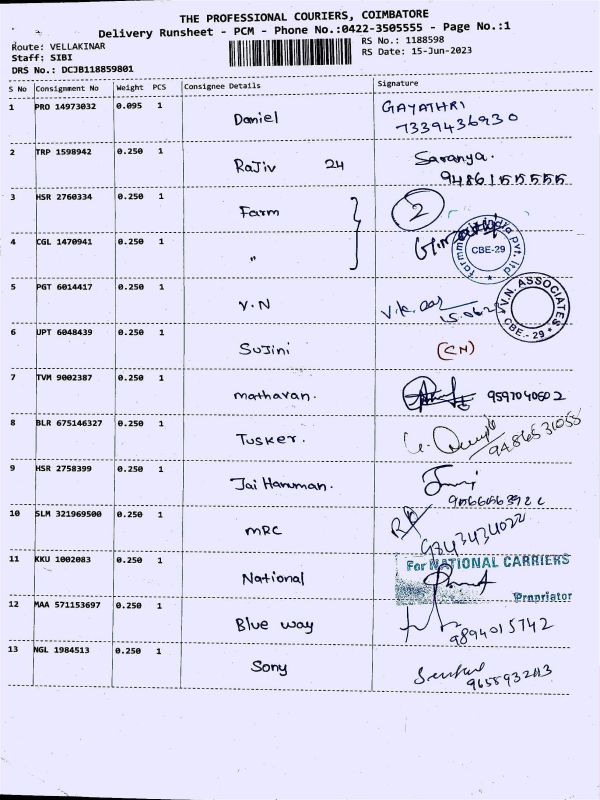 THE PROFESSIONAL COURIERS, COIMBATORE
Delivery Runsheet - PCM - Phone No.:0422-3505555 - Page No.:1
Route: VELLAKINAR
RS No.: 1188598
Staff: SIBI
RS Date: 15-Jun-2023
DRS No.: DCJB118859801
S No Consignment No Weight PCS Consignee Details Signature
1 PRO 14973032 0.095 1 Daniel GAYATHRI
7339436930
2 TRP 1598942 0.250 1 Rajiv 24 Saranya.
9486155555
3 HSR 2760334 0.250 1 Farm 2
4 CGL 1470941 0.250 1 "
india pvt. ltd
CBE-29
5 PGT 6014417 0.250 1 V.N
V.N. ASSOCIATES
CBE.- 29
6 UPT 6048439 0.250 1 Sujini (CN)
7 TVM 9002387 0.250 1 mathavan. 9597040602
8 BLR 675146327 0.250 1 Tusker. 9486531055
9 HSR 2758399 0.250 1 Jai Hanuman.
10 SLM 321969500 0.250 1 MRC 9843434022
11 KKU 1002083 0.250 1 National For NATIONAL CARRIERS
Proprietor
12 MAA 571153697 0.250 1 Blue way 9894015742
13 NGL 1984513 0.250 1 Sony